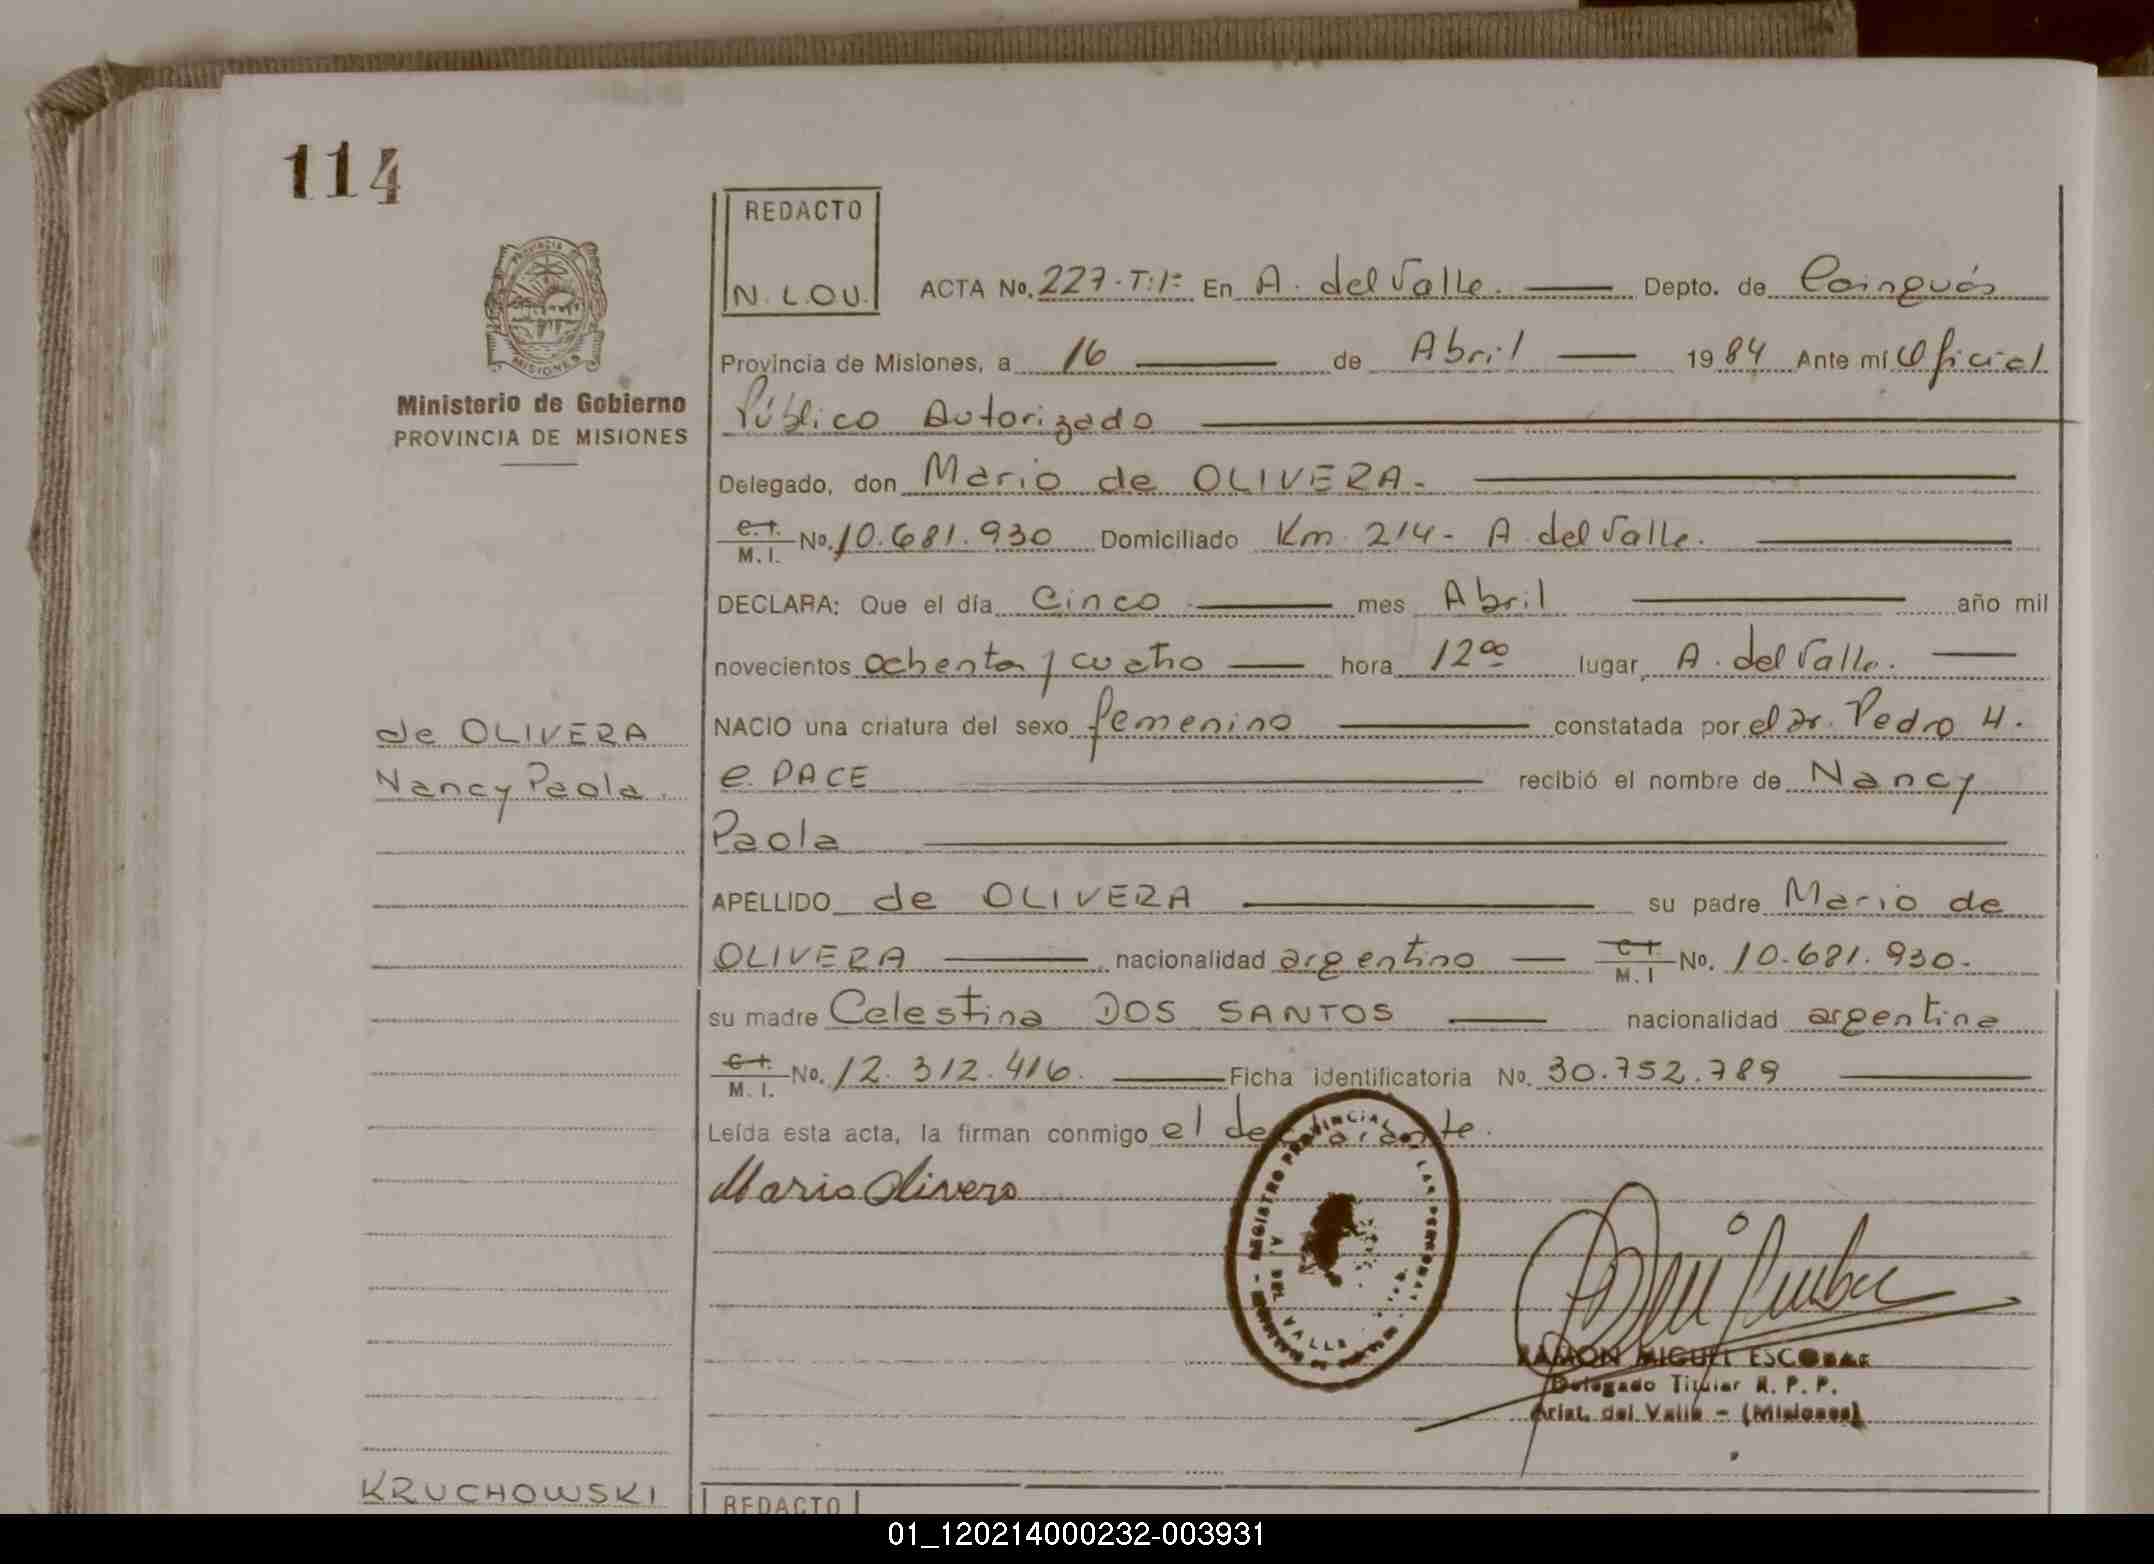 114
REDACTO
N. L.OU.
PROVINCIA DE
MISIONES
Ministerio de Gobierno
PROVINCIA DE MISIONES
ACTA No. 227-T:1= En A. del Valle. Depto. de Cainguás
Provincia de Misiones, a 16 de Abril 1984 Ante mí Oficial
Público Autorizado
Delegado, don Mario de OLIVERA.
C.I. M.I. No. 10.681.930 Domiciliado Km. 214- A. del Valle.
DECLARA: Que el día Cinco mes Abril año mil
novecientos ochenta y cuatro hora 12 00 lugar A. del Valle.
NACIO una criatura del sexo femenino constatada por el Dr. Pedro H.
e. PACE recibió el nombre de Nancy
Paola
de OLIVERA
Nancy Paola.
APELLIDO de OLIVERA su padre Mario de
OLIVERA nacionalidad argentino C.I. M.I No. 10.681.930-
su madre Celestina DOS SANTOS nacionalidad argentina
C.I. M.I. No. 12.312.416. Ficha identificatoria No. 30.752.789
Leída esta acta, la firman conmigo el declarante.
Mario Olivera
REGISTRO PROVINCIAL DE LAS PERSONAS
A. DEL VALLE
RAMON MIGUEL ESCOBAR
Delegado Titular R. P. P.
Arist. del Valle - (Misiones)
KRUCHOWSKI
REDACTO
01_120214000232-003931